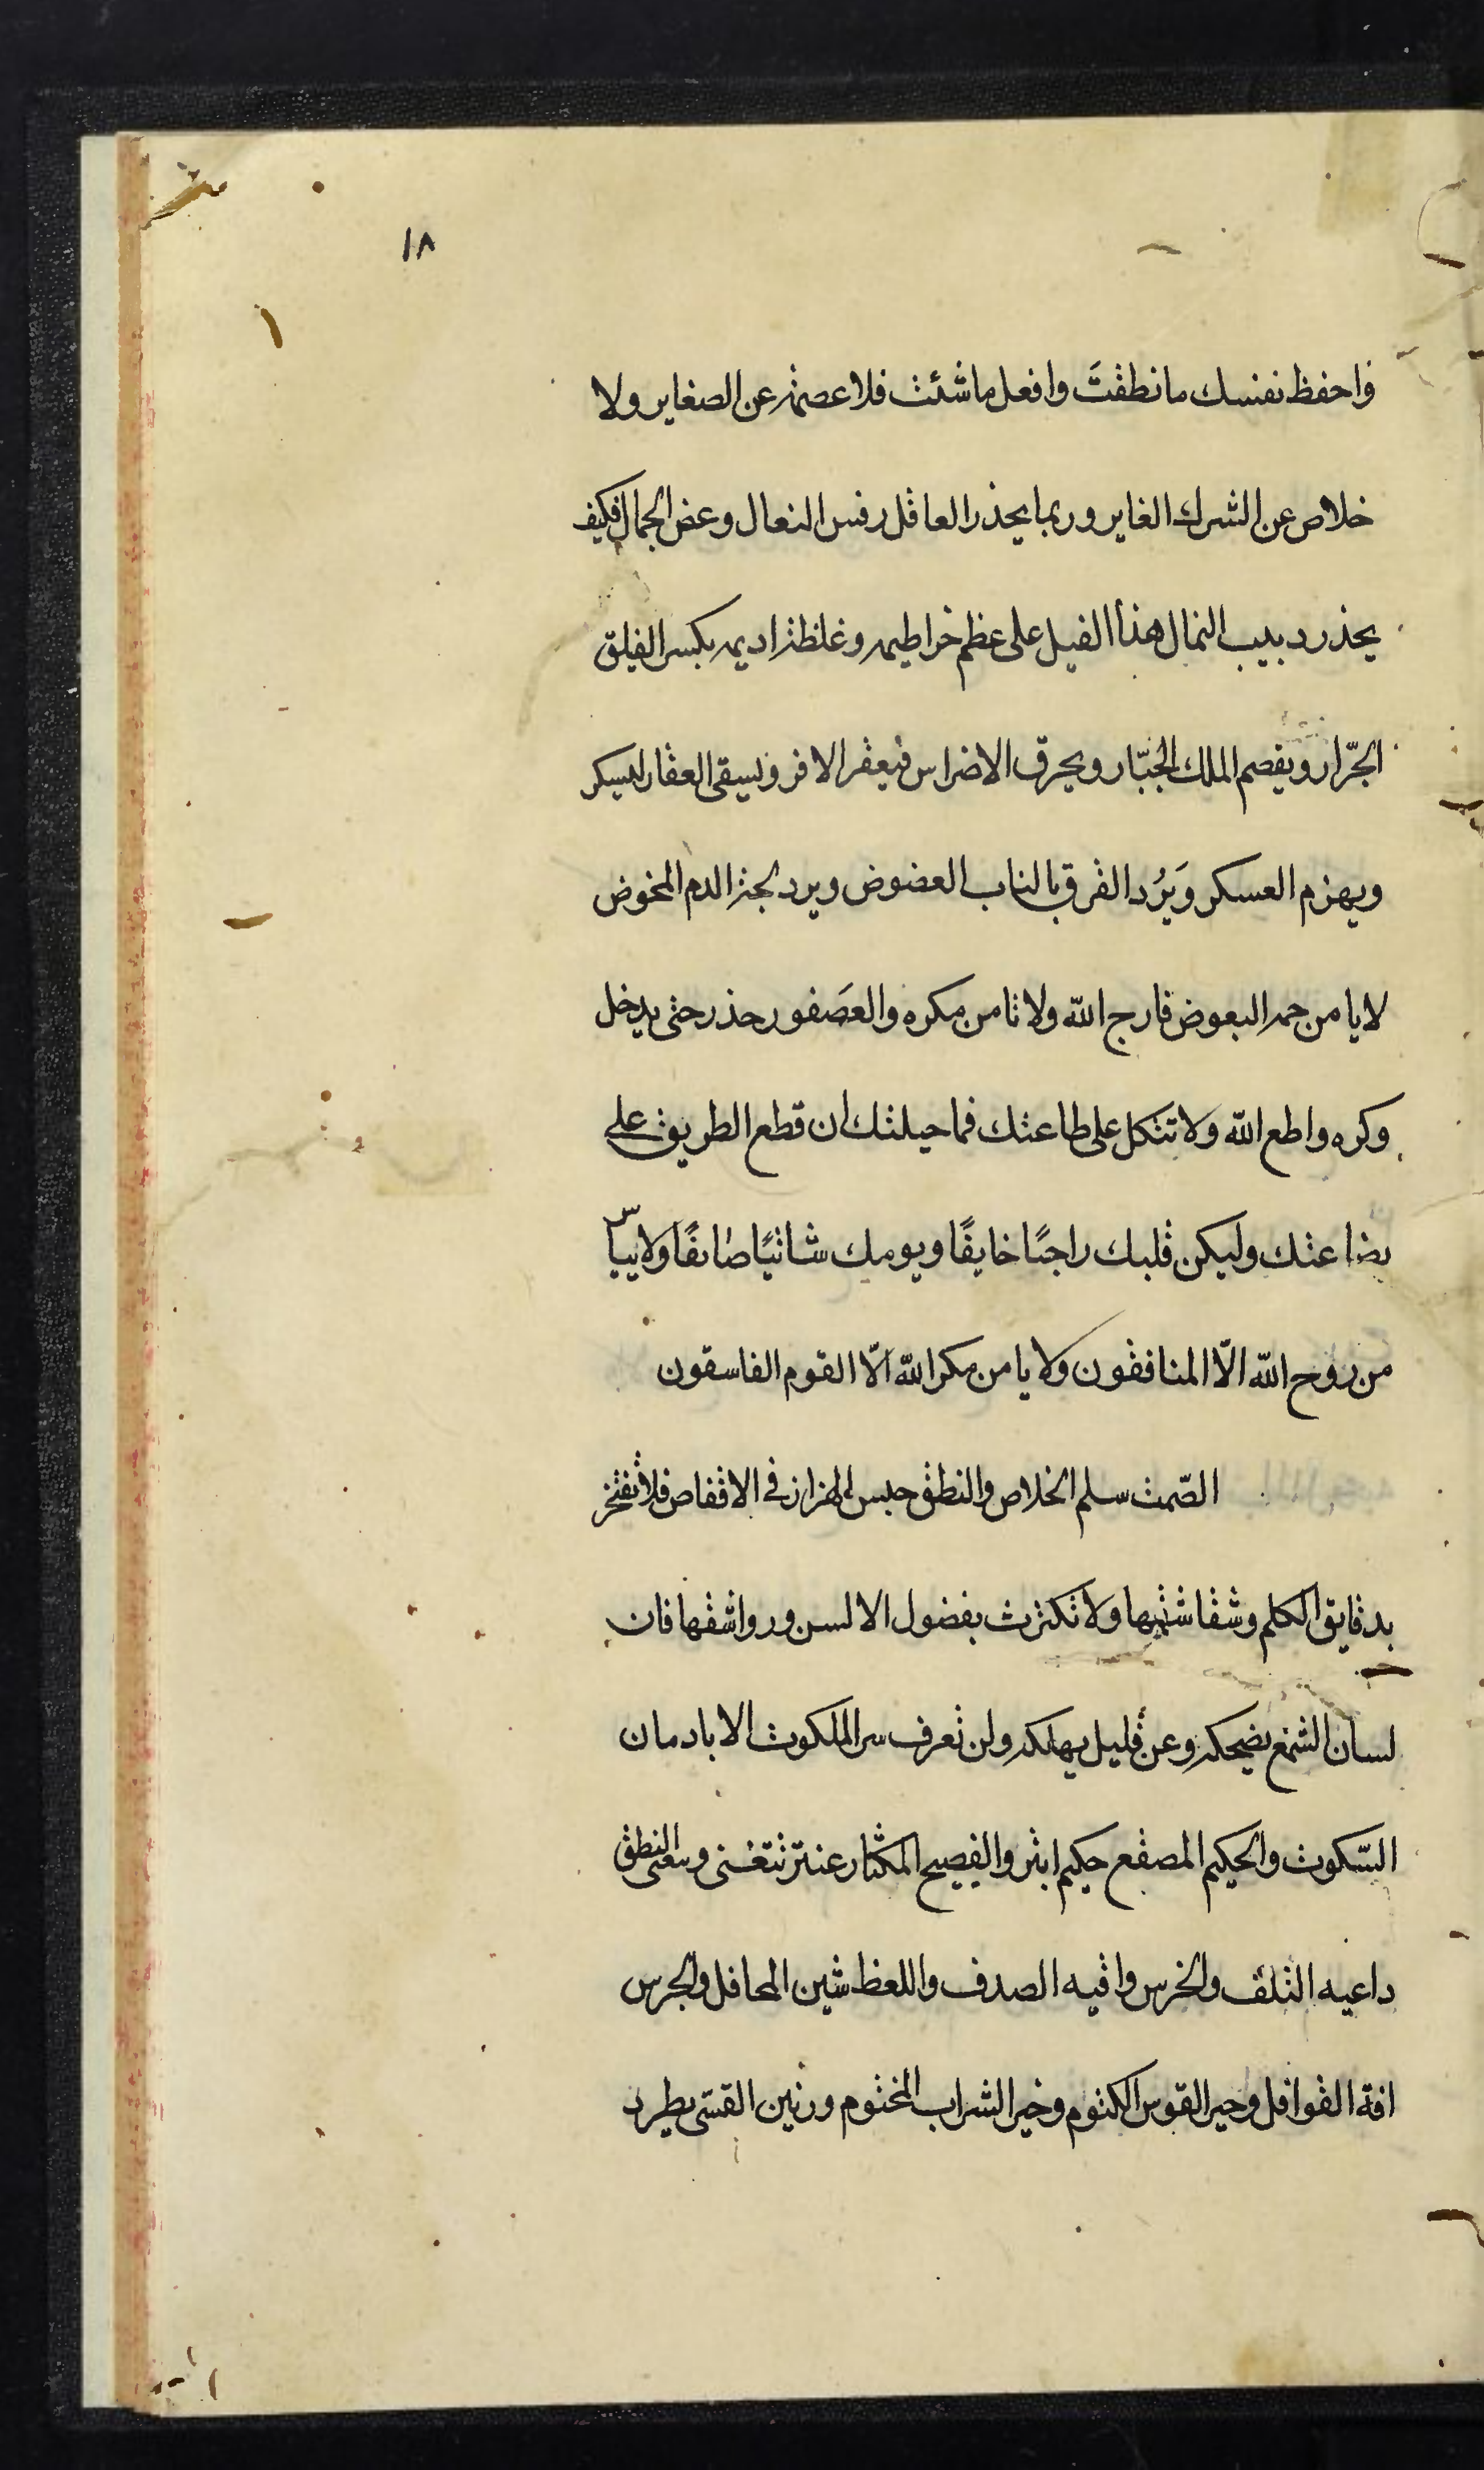 ١٨
فاحفظ نفسك ما نطقتَ وافعل ما شئت فلا عصمة عن الصغاير ولا
خلاص عن الشرك الغاير وربما يحذر العاقل رفس النعال وعض الجمال فكيف
يحذر دبيب النمال هذا الفيل على عظم خراطيمه وغلظة اديمه يكسر الفيلق
الجرّار ويقصم الملك الجبّار ويحرق الاضراس فيعقر الافر ويسقى العقار ليسكر
ويهزم العسكر وَيَرُد الفرق بالناب العضوض ويرد لجة الدم المخوض
لا يا من حمة البعوض فارج الله ولا تامن مكره والعصَفور حذر حتى يدخل
وكره واطع الله ولا تتكل على طاعتك فما حيلتك ان قطع الطريق على
بضاعتك وليكن قلبك راجيًا خايفًا ويومك شاتيًا صايفًا ولا ييأس
من روح الله الّا المنافقون ولا يامن مكر الله الّا القوم الفاسقون
الصّمت سلم الخلاص والنطق حبس الهزار في الاقفاص فلا تفتخر
بدقايق الكلم وشقاشقها ولا تكترث بفضول الالسن ورواشقها فان
لسان الشمع يضحكه وعن قليل يهلكه ولن تعرف سر الملكوت الا بادمان
السّكوت والحكيم المصقع حكيم ابتر والفصيح المكثار عنتر تتغنى والنطق
داعيه التلف والخرس واقيه الصدف واللعظ شين المحافل والجرس
افة القوافل وخير القوس الكتوم وخير الشراب المختوم ورنين القسّى يطرد